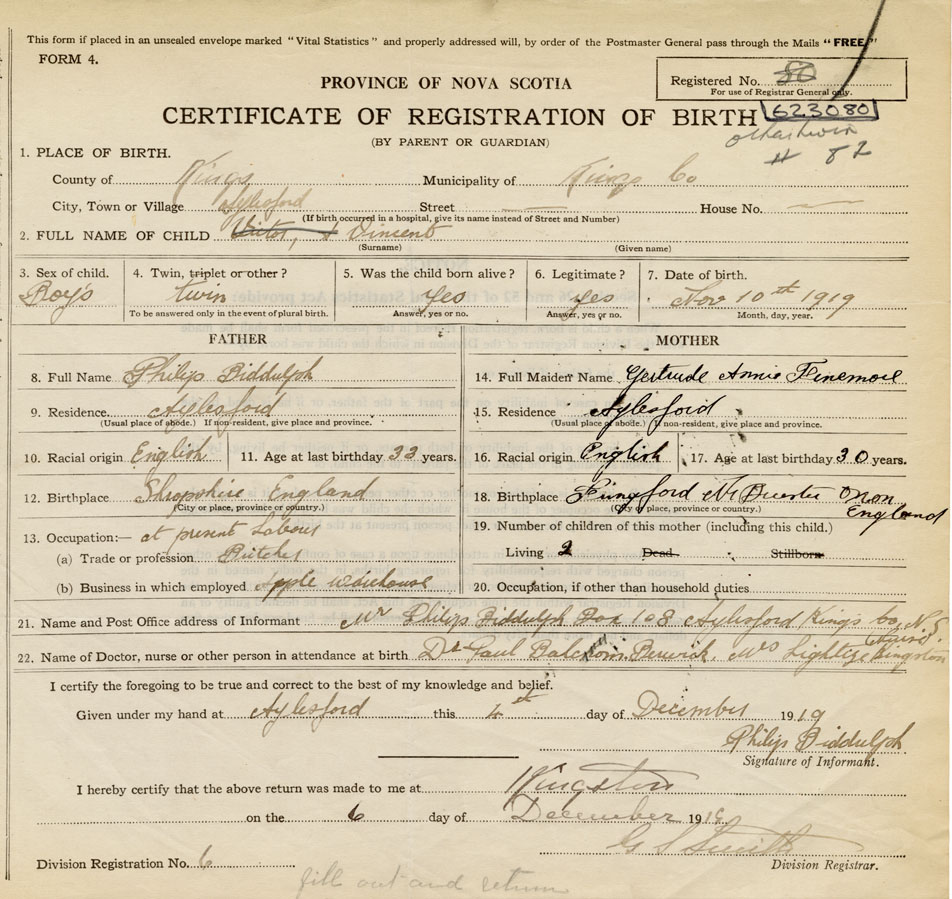 This form if placed in an unsealed envelope marked "Vital Statistics" and properly addressed will, by order of the Postmaster General pass through the Mails "FREE."
FORM 4.
Registered No. 80
For use of Registrar General only.
PROVINCE OF NOVA SCOTIA
CERTIFICATE OF REGISTRATION OF BIRTH
623080
(BY PARENT OR GUARDIAN)
other twin
# 82
1. PLACE OF BIRTH.
County of Kings Municipality of Kings Co
City, Town or Village Aylesford Street House No.
(If birth occurred in a hospital, give its name instead of Street and Number)
2. FULL NAME OF CHILD Victor, & Vincent
(Surname) (Given name)
3. Sex of child. 4. Twin, triplet or other? 5. Was the child born alive? 6. Legitimate? 7. Date of birth.
Boys twin Yes Yes Nov 10th 1919
To be answered only in the event of plural birth. Answer, yes or no. Answer, yes or no. Month, day, year.
FATHER
8. Full Name Philip Biddulph
9. Residence Aylesford
(Usual place of abode.) If non-resident, give place and province.
10. Racial origin English 11. Age at last birthday 33 years.
12. Birthplace Shropshire England
(City or place, province or country.)
13. Occupation:— at present Labour
(a) Trade or profession Butcher
(b) Business in which employed Apple Warehouse
MOTHER
14. Full Maiden Name Gertrude Annie Finemore
15. Residence Aylesford
(Usual place of abode.) If non-resident, give place and province.
16. Racial origin English 17. Age at last birthday 30 years.
18. Birthplace Oxon
(City or place, province or country.) England
19. Number of children of this mother (including this child.)
Living 2 Dead Stillborn
20. Occupation, if other than household duties
21. Name and Post Office address of Informant Mr Philip Biddulph Box 108 Aylesford Kings Co, N.S
22. Name of Doctor, nurse or other person in attendance at birth Dr Paul Balcom Berwick, Mrs Nurse Kingston
I certify the foregoing to be true and correct to the best of my knowledge and belief.
Given under my hand at Aylesford this 4st day of December 1919
Philip Biddulph
Signature of Informant.
I hereby certify that the above return was made to me at Kingston
on the 6 day of December 1919
G S Smith
Division Registration No. 6 Division Registrar.
fill out and return